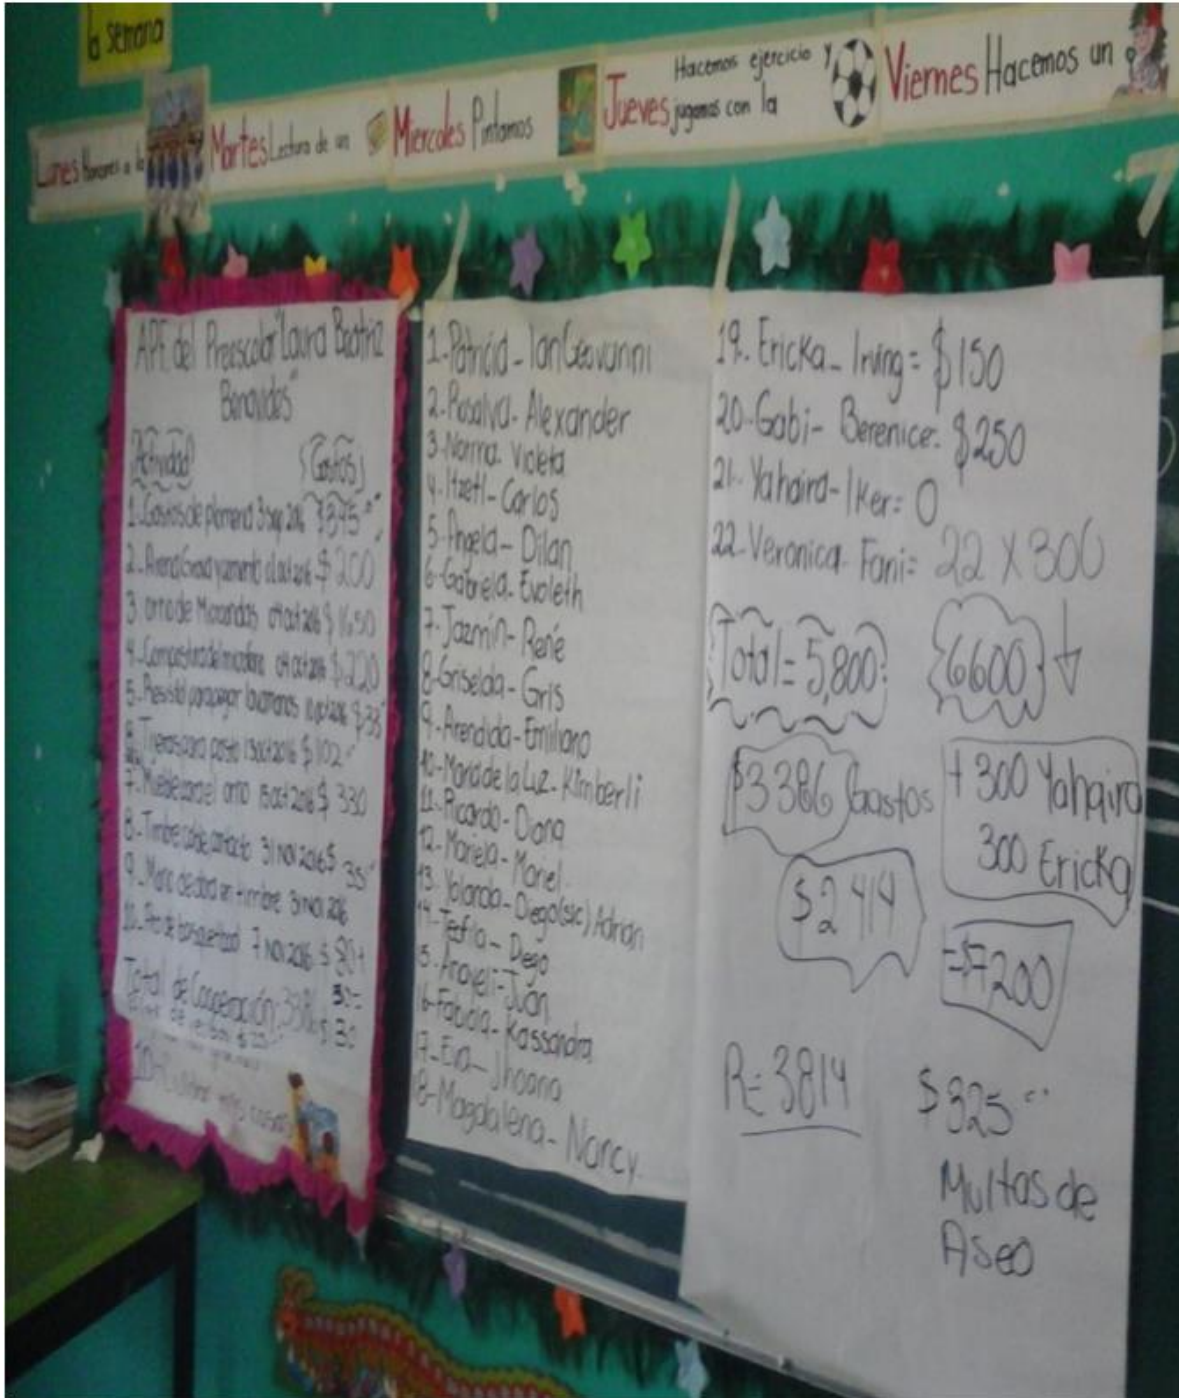 la semana
Lunes Honores a la
Martes Lectura de un
Miercoles Pintamos
Jueves Hacemos ejercicio y
jugamos con la
Viernes Hacemos un
APF del Preescolar "Laura Beatriz
Benavides"
Actividad Gastos
1.-Gastos de plomeria 3 sep 2016 $395
2.- Arena Grava y cemento oct 2016 $200
3. 04 oct 2016 $ 1650
4. 04 oct 2016 $220
5. para pagar lavamanos 2016
para pasto 13 oct 2016 $102
7. 15 oct 2016 $ 330
8.- Timbre cable contacto 31 Nov 2016 $ 35
9.- Mano de obra en timbre 3 Nov 2016
10. 7 Nov 2016
Total de Cooperación: 3386 $ 30
1-Patricia- Ian Geovanni
2.-Rosalva- Alexander
3-Norma- Violeta
4-Itzetl-Carlos
5-Angela- Dilan
6-Gabriela- Evoleth
7-Jazmin- René
8-Griselda- Gris
9- Emiliano
10-Maria de la Luz- Kimberli
11-Ricardo- Diana
12-Mariela- Mariel
13. Yolanda- Diego (sic) Adrian
14- Diego
5. Juan
16-Fabiola- Kassandra
17-Eva- Jhoana
18-Magdalena- Nancy.
19.- Ericka- Irving= $150
20-Gabi- Berenice: $250
21.- Yahaira- Iker= 0
22-Veronica- Fani= 22 X 300
Total= 5,800 6600
$3386 Gastos + 300 Yahaira
300 Ericka
$2414
=$7200
R= 3814
$325
Multas de
Aseo